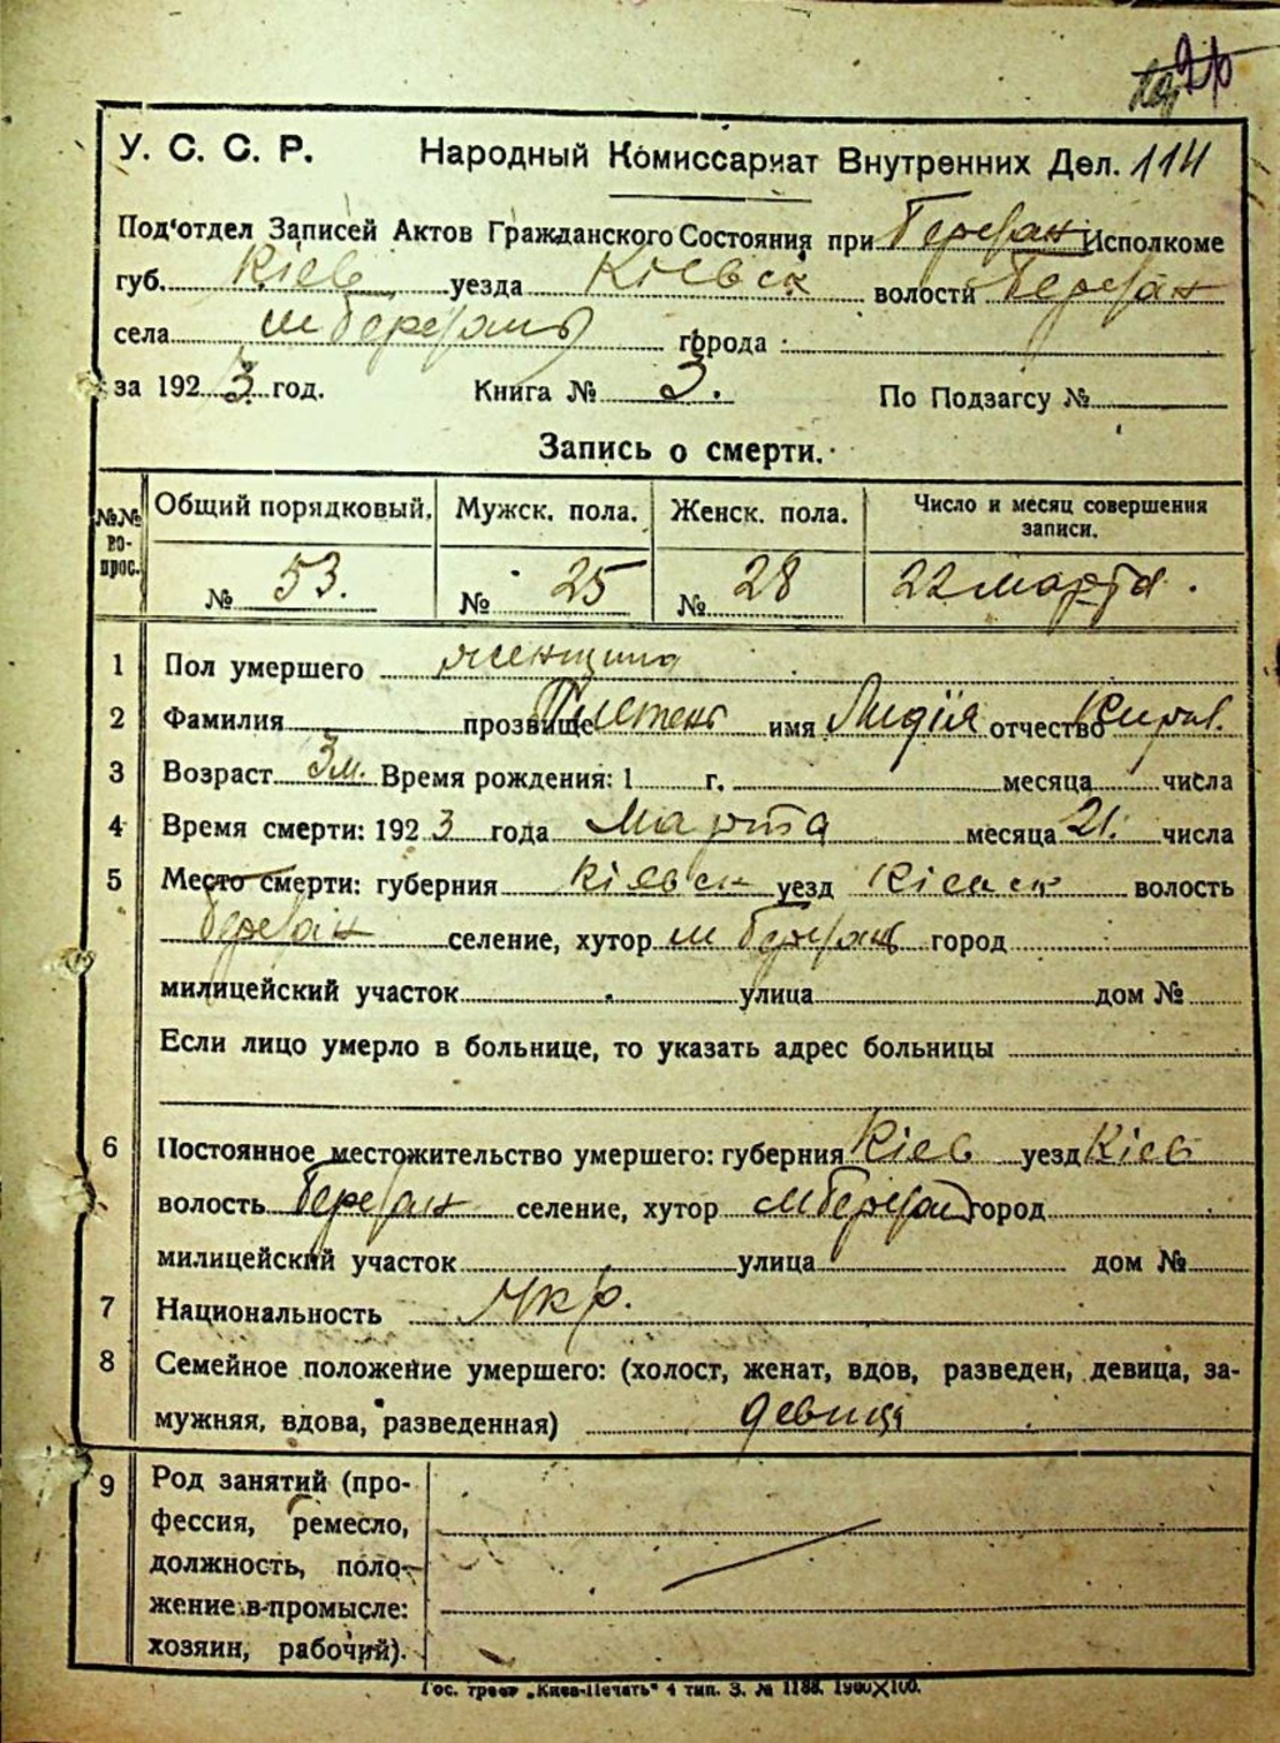 У. С. С. Р. Народный Комиссариат Внутренних Дел. 114
Под'отдел Записей Актов Гражданского Состояния при Березан Исполкоме
губ. Кіев уезда Кіевск волости Березан
села м Березань города
за 1923 год. Книга № 3. По Подзагсу №
Запись о смерти.
№№ во-прос. Общий порядковый. Мужск. пола. Женск. пола. Число и месяц совершения записи.
№ 53. № 25 № 28 22 марта.
1 Пол умершего женщина
2 Фамилия прозвище имя Лидія отчество Кирил.
3 Возраст 3 м. Время рождения: 1 г. месяца числа
4 Время смерти: 1923 года Марта месяца 21. числа
5 Место смерти: губерния Кіевск уезд Кіевск волость
Березан селение, хутор м Березань город
милицейский участок улица дом №
Если лицо умерло в больнице, то указать адрес больницы
6 Постоянное местожительство умершего: губерния Кіев уезд Кіев
волость Березан селение, хутор м Березань город
милицейский участок улица дом №
7 Национальность Укр.
8 Семейное положение умершего: (холост, женат, вдов, разведен, девица, за-
мужняя, вдова, разведенная) девица
9 Род занятий (про-
фессия, ремесло,
должность, поло-
жение в промысле:
хозяин, рабочий).
Гос. трест „Киев-Печать" 4 тип. З. № 1188. 1900×100.